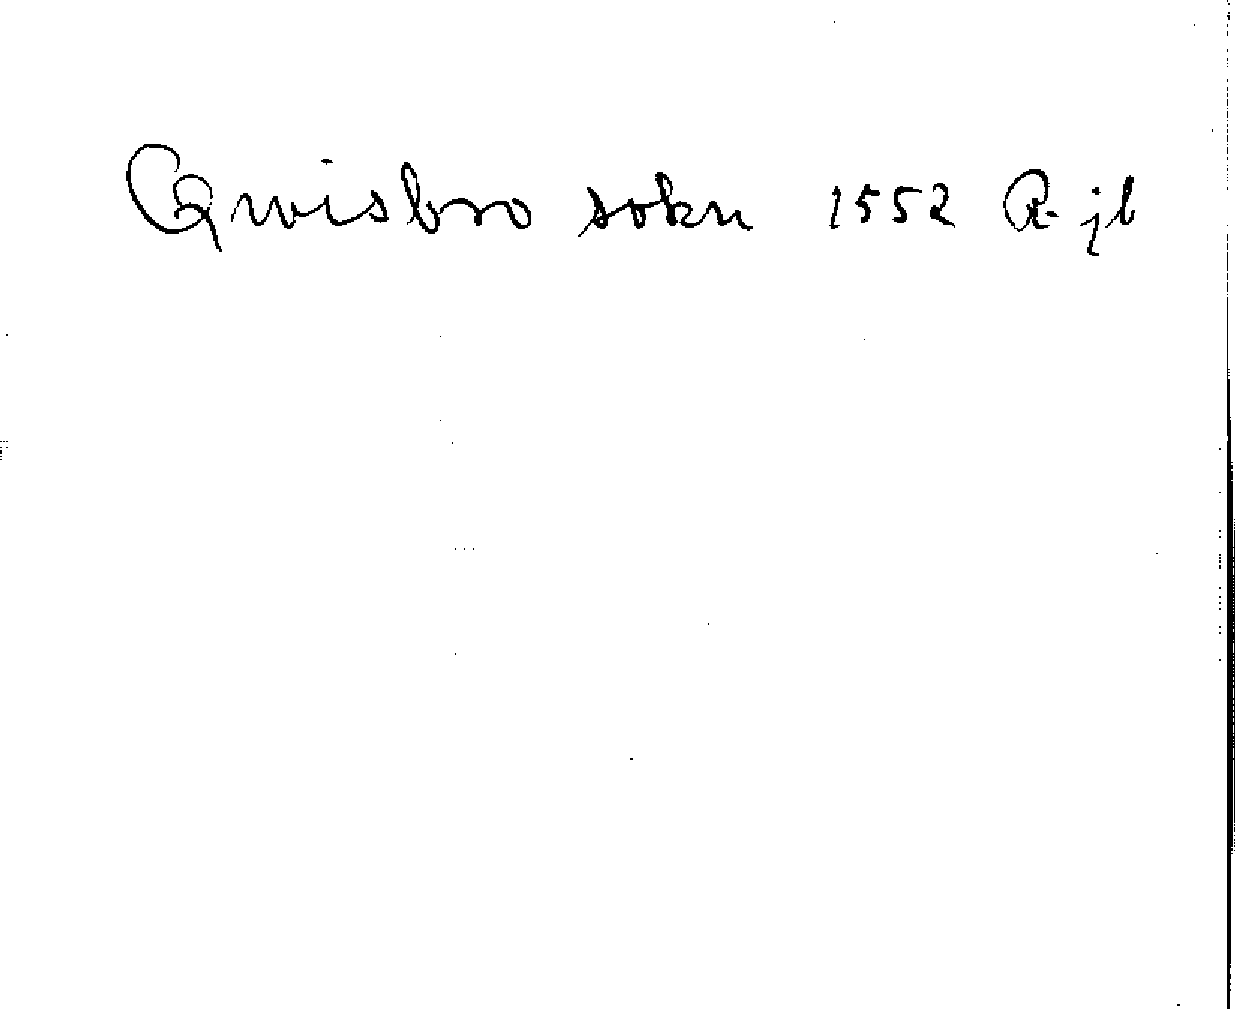 Cqwisbro sokn 1552 R jb